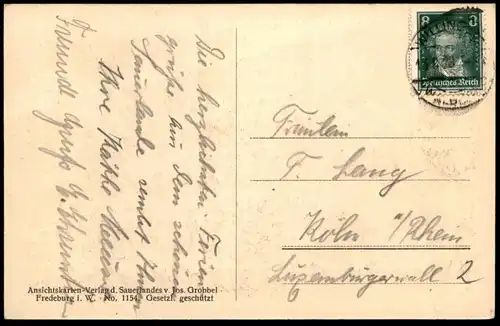 Die herzlichsten Ferien-
grüße aus dem schönen
Sauerlande sendet Ihnen
Ihre Käthe
Freundl. Gruß E.
8 8
Deutsches Reich
Fräulein
F. Lang
Köln a/Rhein
Luxemburgerwall 2
Ansichtskarten-Verlag d. Sauerlandes v. Jos. Grobbel
Fredeburg i. W. No. 1154. Gesetzl. geschützt